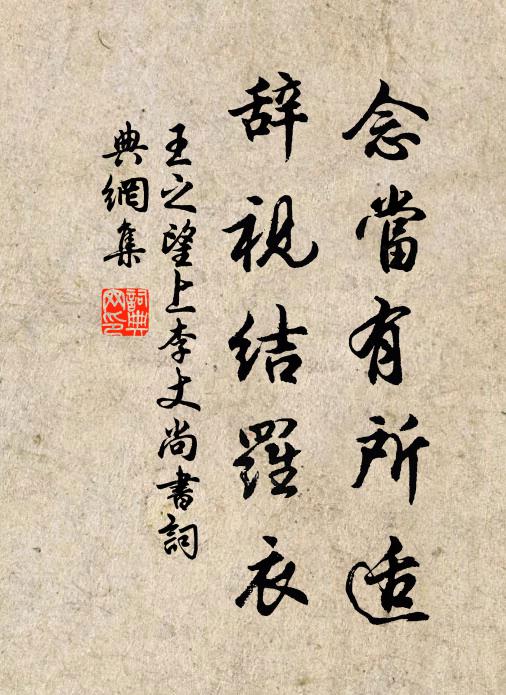 念當有所适
辞視结羅衣
王之望上李丈尚書詞
典網集
詞典
网印